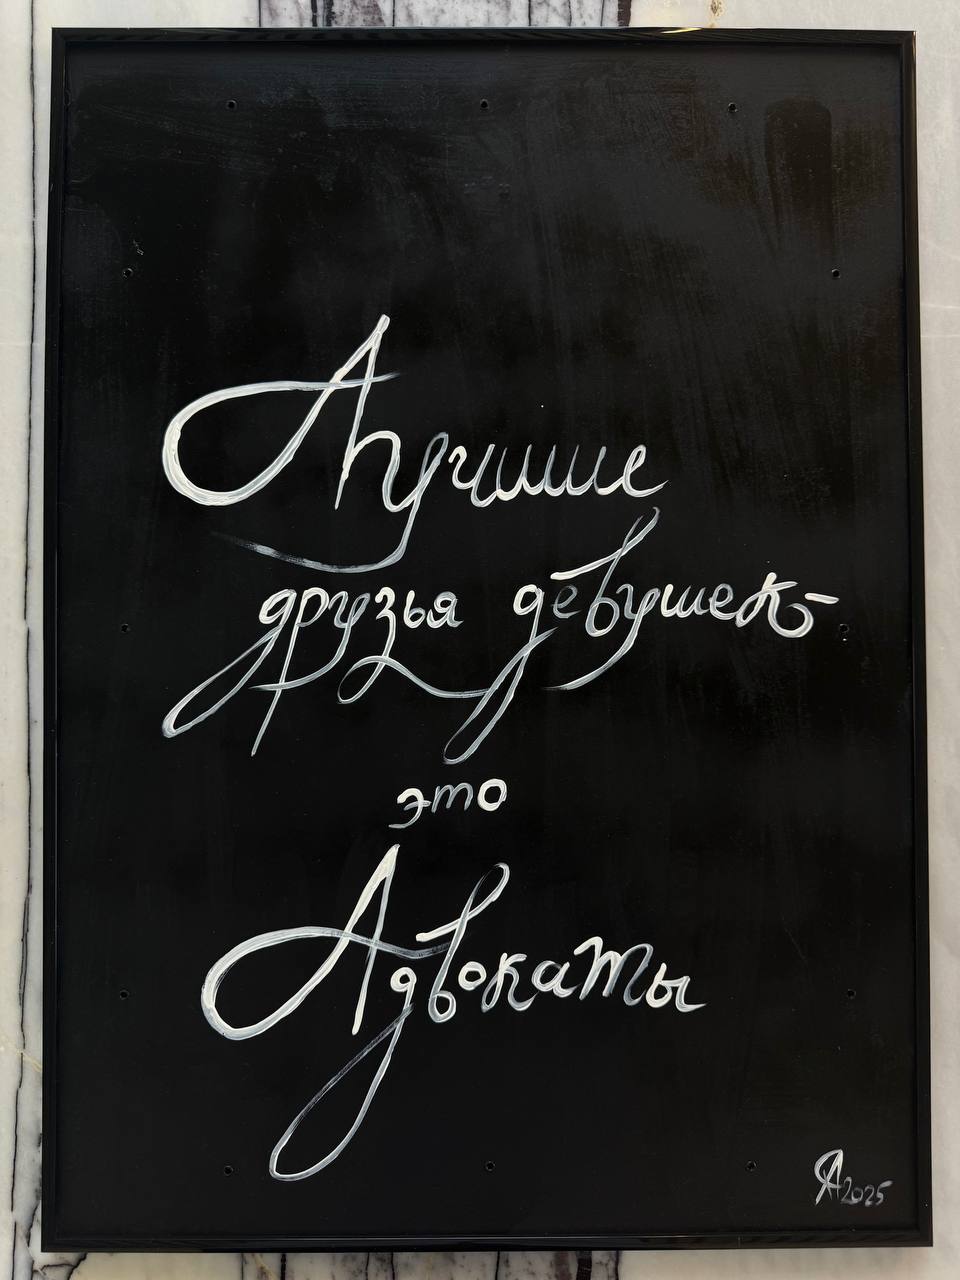 Лучшие
друзья девушек-
это
Адвокаты
ЯА 2025